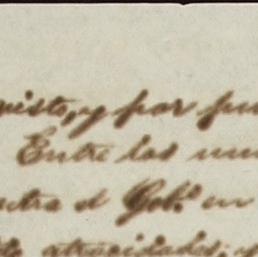 visto, y por pu
Entre las mu
ntra el Gob.º en
de atrocidades; y